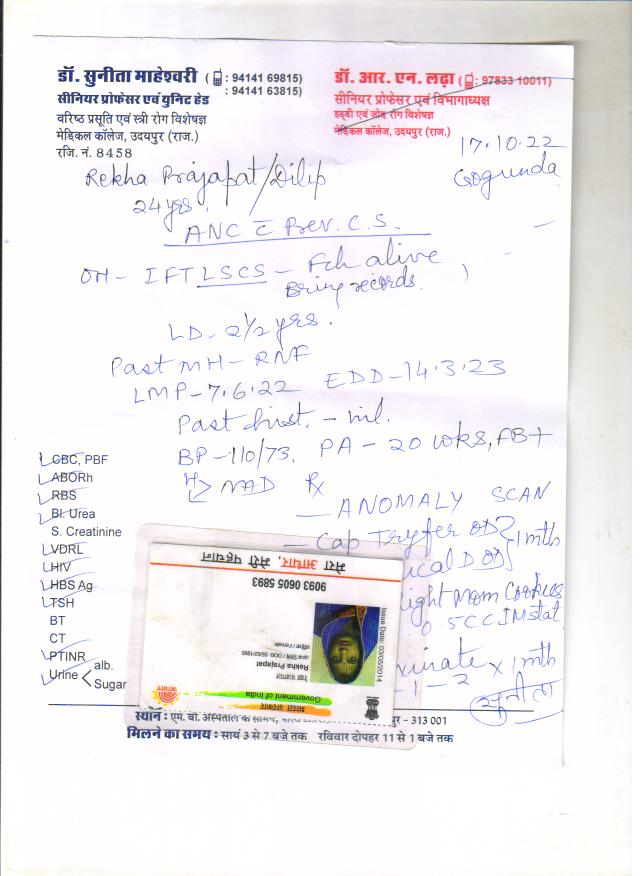 डॉ. सुनीता माहेश्वरी ( : 94141 69815)
: 94141 63815)
सीनियर प्रोफेसर एवं युनिट हेड
वरिष्ठ प्रसूति एवं स्त्री रोग विशेषज्ञ
मेडिकल कॉलेज, उदयपुर (राज.)
रजि. नं. 8458
डॉ. आर. एन. लढ़ा ( : 97833 10011)
सीनियर प्रोफेसर एवं विभागाध्यक्ष
हड्डी एवं जोड़ रोग विशेषज्ञ
मेडिकल कॉलेज, उदयपुर (राज.)
17.10.22
Rekha Prajapat/Dilip
Gogunda
24 yrs.
ANC c̄ Prev. C.S.
OH- IFTLSCS - Fch alive
Bring records.
LD- 2½ yrs.
Past MH- RNF
LMP-7.6.22 EDD-14.3.23
Past hist. - nil.
BP-110/73. PA - 20 wks, FB+
NAD Rx
CBC, PBF
ABORh
RBS
Bl. Urea
S. Creatinine
VDRL
HIV
HBS Ag
TSH
BT
CT
PTINR
Urine < alb.
Sugar
- ANOMALY SCAN
- Cap Tryfer OD } 1 mth
ical D OD
ight Mom Cookies
0.5CC IM stat
x 1 mth
-1-2
सुनीता
मेरा आधार, मेरी पहचान
9093 0605 5893
Issue Date: 03/05/2014
महिला / Female
जन्म तिथि / DOB: 05/02/1995
Rekha Prajapat
रेखा प्रजापत
Government of India
भारत सरकार
स्थान : एम. बी. अस्पताल के सामने,
पुर - 313 001
मिलने का समय : सायं 3 से 7 बजे तक रविवार दोपहर 11 से 1 बजे तक